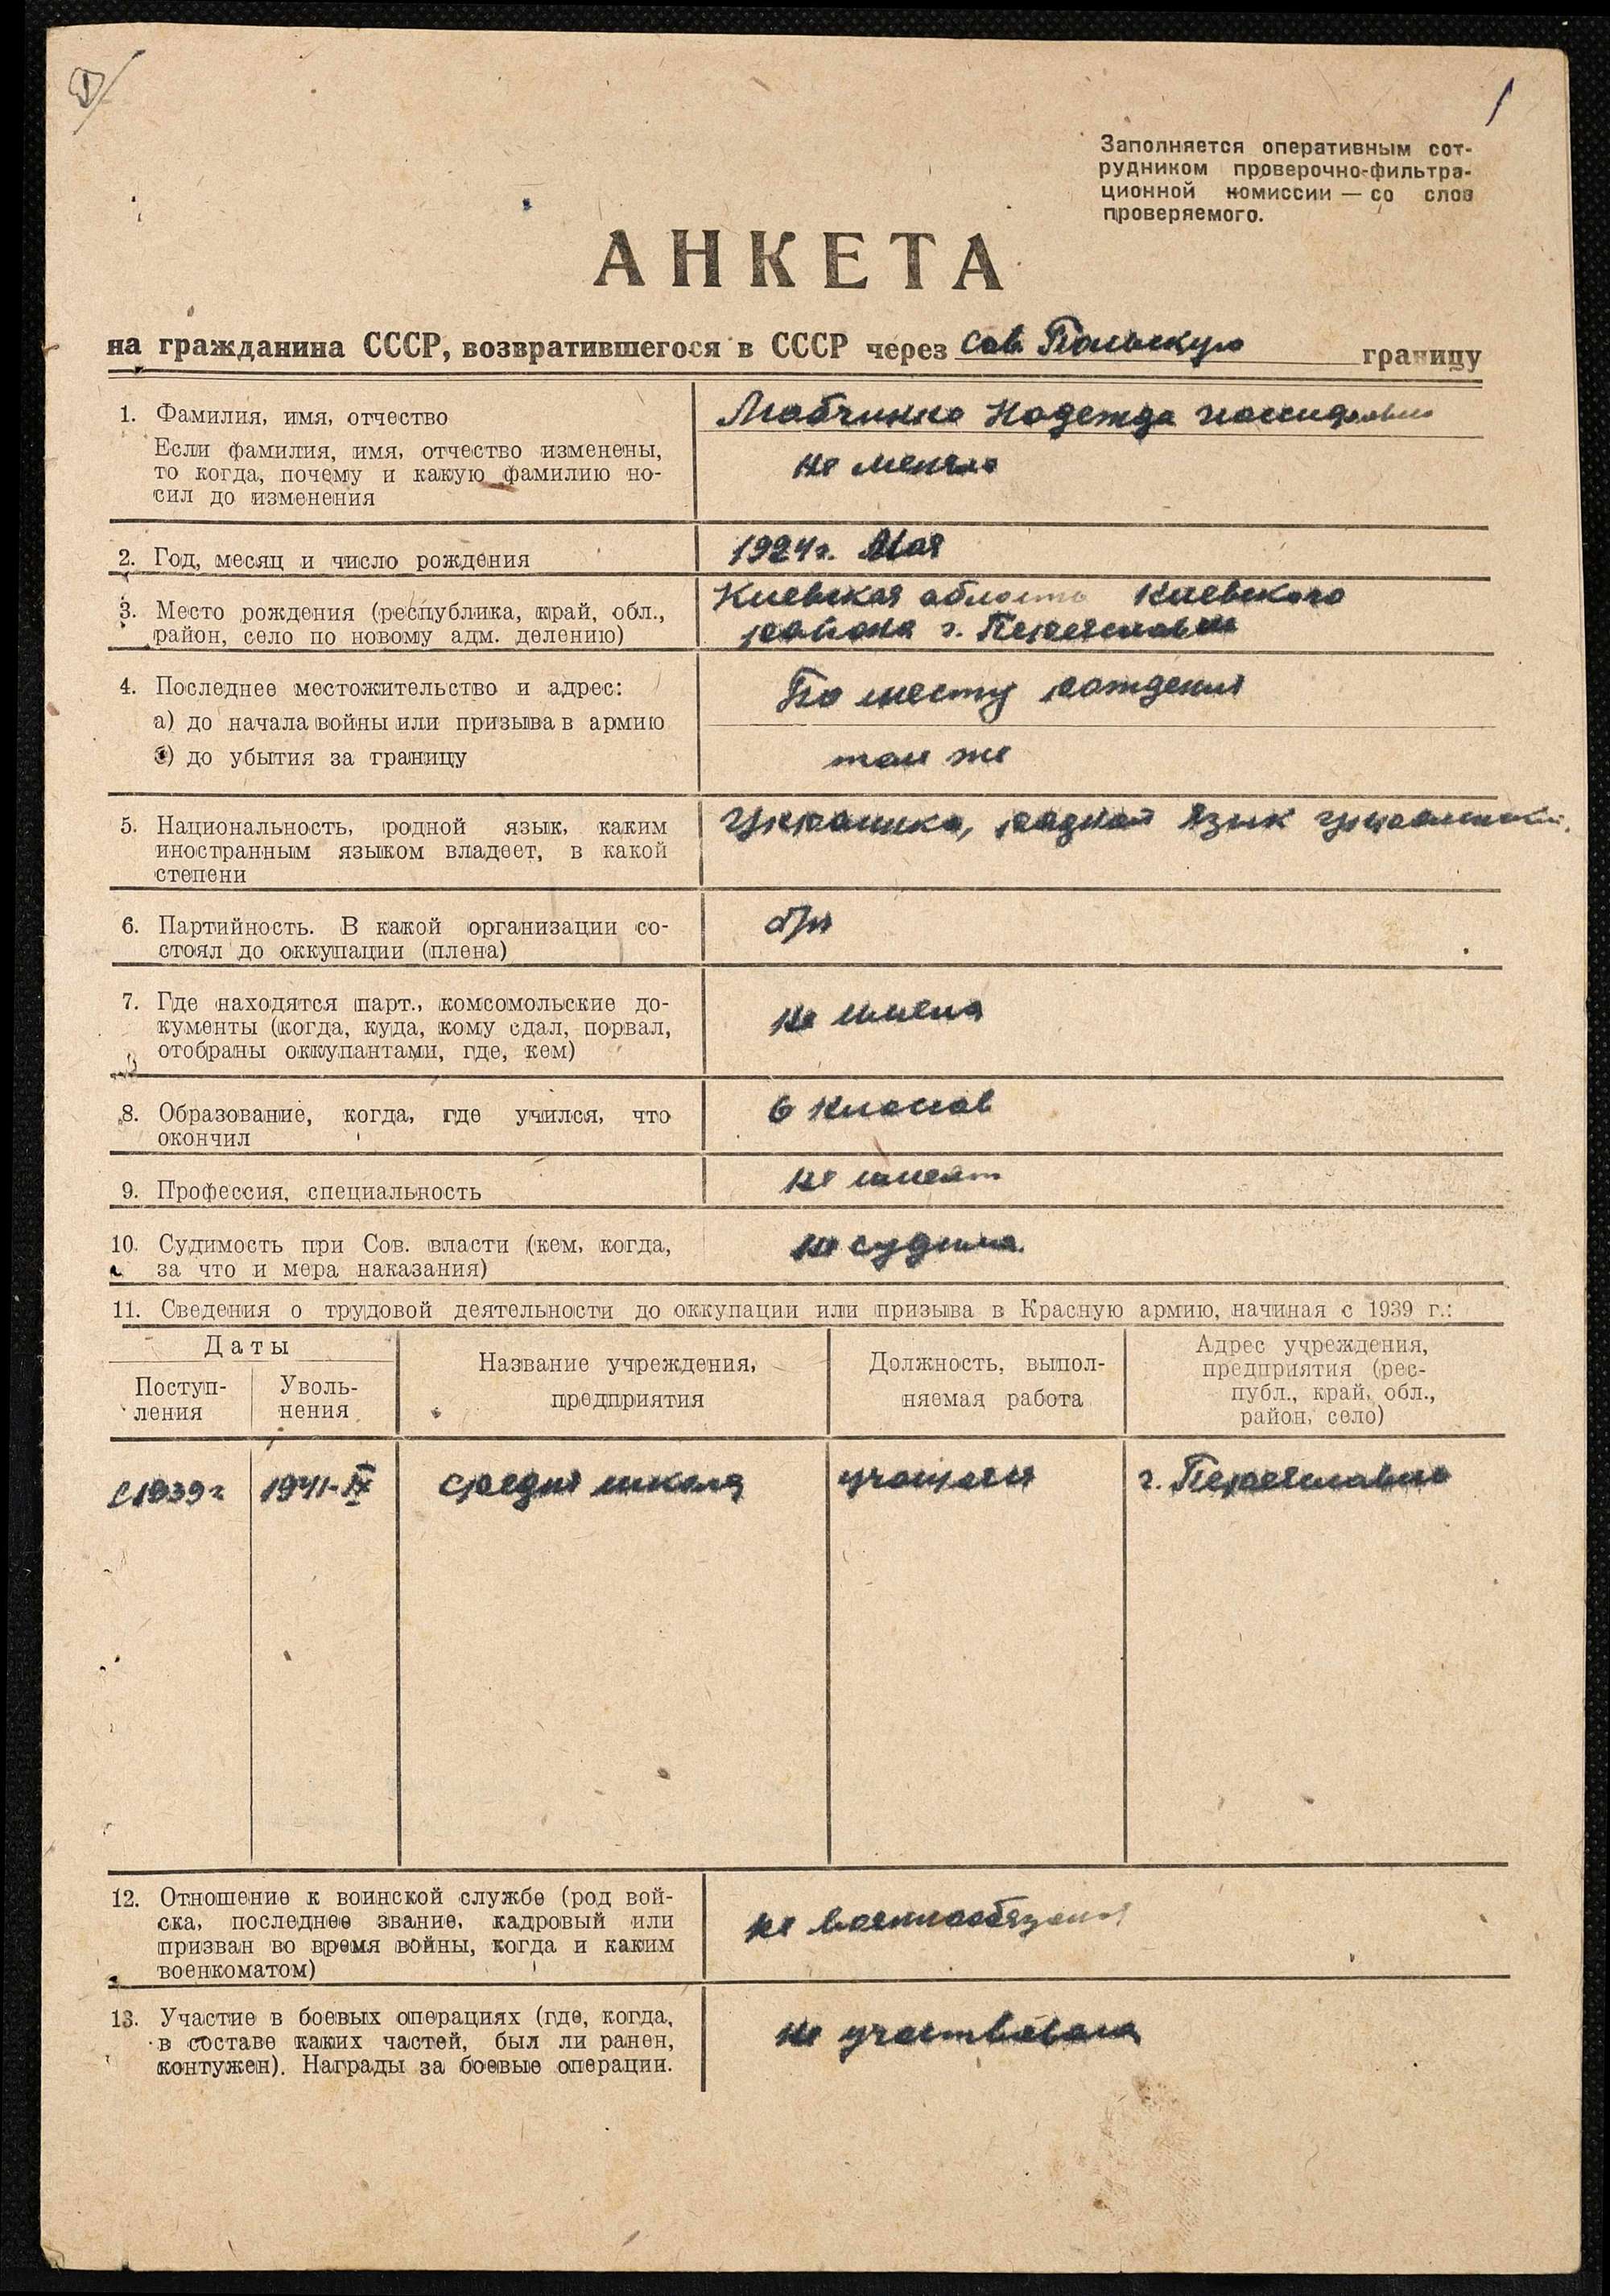 1
Заполняется оперативным сот-
рудником проверочно-фильтра-
ционной комиссии — со слов
проверяемого.
АНКЕТА
на гражданина СССР, возвратившегося в СССР через Сов. Польскую границу
1. Фамилия, имя, отчество
Надежда
Если фамилия, имя, отчество изменены,
то когда, почему и какую фамилию но-
сил до изменения
не меняла
2. Год, месяц и число рождения
1924 г. Мая
3. Место рождения (республика, край, обл.,
район, село по новому адм. делению)
Киевская область Киевского
района г. Переяславль
4. Последнее местожительство и адрес:
а) до начала войны или призыва в армию
По месту рождения
б) до убытия за границу
там же
5. Национальность, родной язык, каким
иностранным языком владеет, в какой
степени
Украинка, родной язык украинский.
6. Партийность. В какой организации со-
стоял до оккупации (плена)
б/п
7. Где находятся парт., комсомольские до-
кументы (когда, куда, кому сдал, порвал,
отобраны оккупантами, где, кем)
не имела
8. Образование, когда, где учился, что
окончил
6 классов
9. Профессия, специальность
не имеет
10. Судимость при Сов. власти (кем, когда,
за что и мера наказания)
не судима.
11. Сведения о трудовой деятельности до оккупации или призыва в Красную армию, начиная с 1939 г.:
Даты
Поступ-
ления
Уволь-
нения
Название учреждения,
предприятия
Должность, выпол-
няемая работа
Адрес учреждения,
предприятия (рес-
публ., край, обл.,
район, село)
с 1939 г. 1941-IX средня школа учащаяся г. Переяславль
12. Отношение к воинской службе (род вой-
ска, последнее звание, кадровый или
призван во время войны, когда и каким
военкоматом)
не военнообязана
13. Участие в боевых операциях (где, когда,
в составе каких частей, был ли ранен,
контужен). Награды за боевые операции.
не участвовала